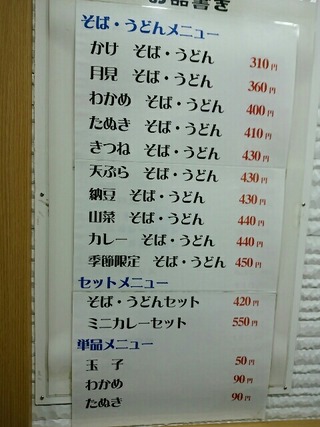 お品書き
そば・うどんメニュー
かけ そば・うどん 310円
月見 そば・うどん 360円
わかめ そば・うどん 400円
たぬき そば・うどん 410円
きつね そば・うどん 430円
天ぷら そば・うどん 430円
納豆 そば・うどん 430円
山菜 そば・うどん 440円
カレー そば・うどん 440円
季節限定 そば・うどん 450円
セットメニュー
そば・うどんセット 420円
ミニカレーセット 550円
単品メニュー
玉子 50円
わかめ 90円
たぬき 90円